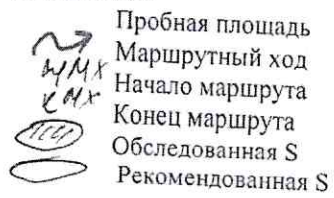 Пробная площадь
Маршрутный ход
нмх Начало маршрута
кмх Конец маршрута
Обследованная S
Рекомендованная S